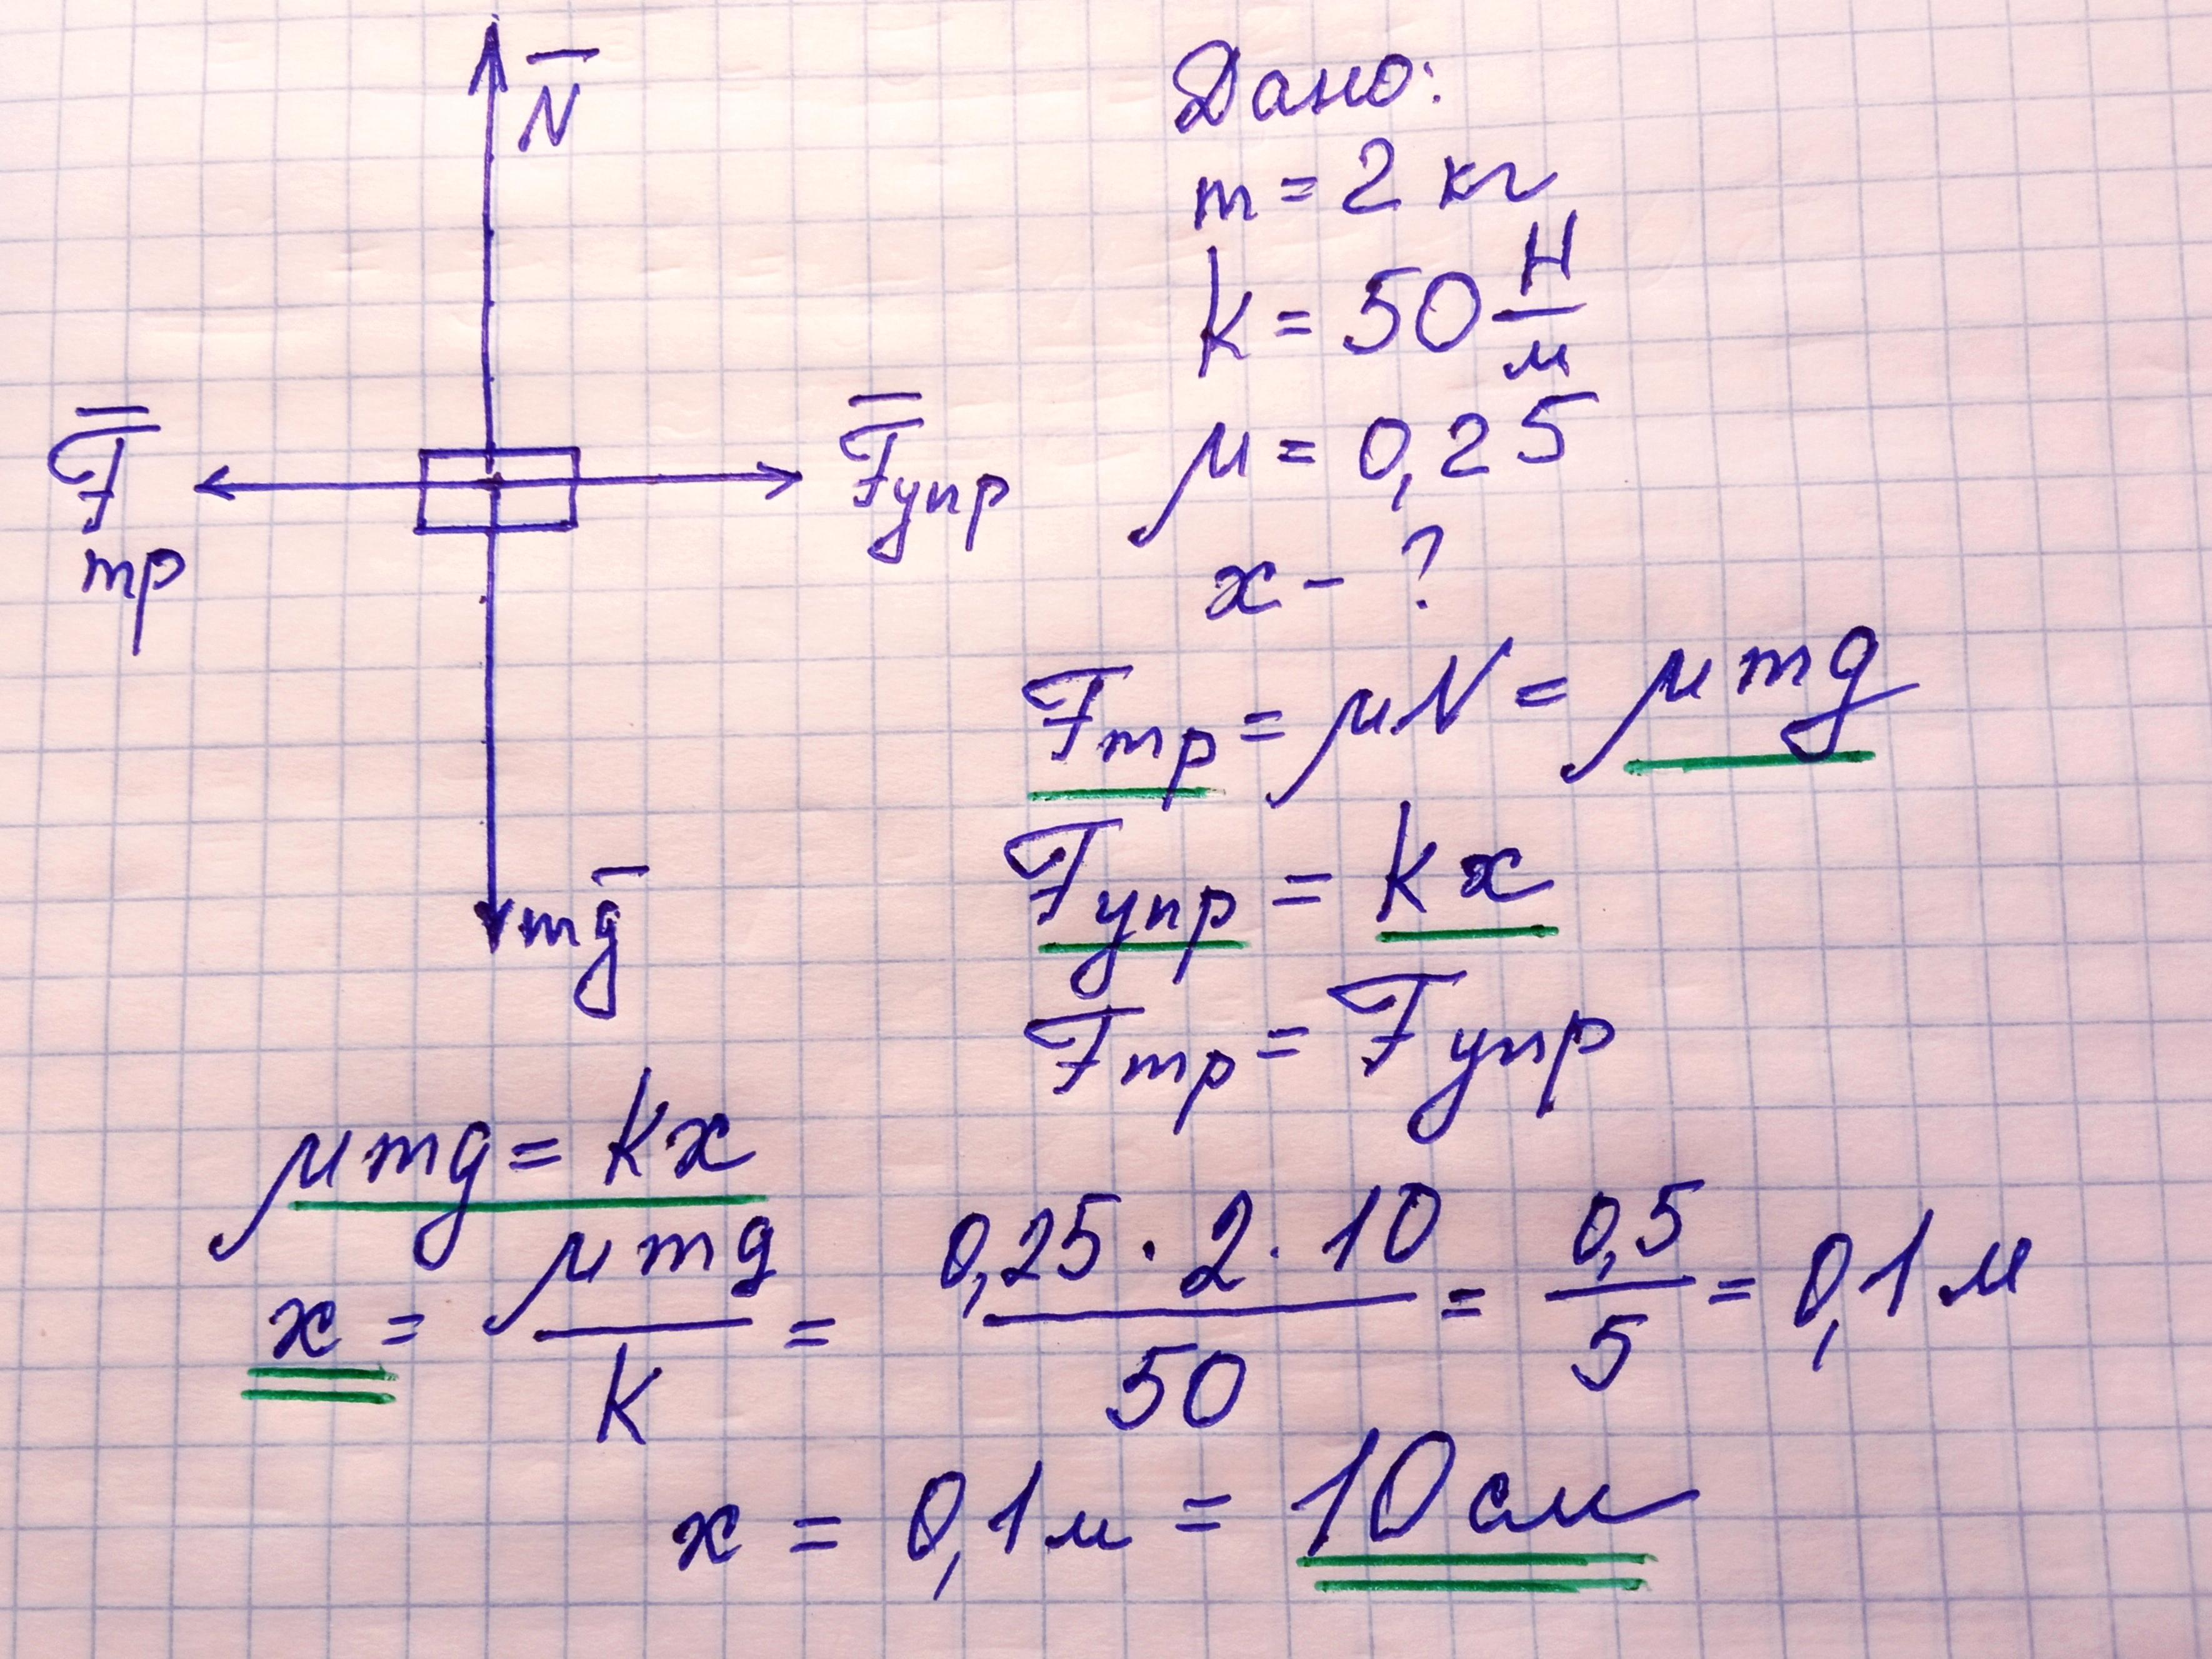 N̅
F̅
тр
F̅упр
mg̅
Дано:
m = 2 кг
k = 50 Н/м
μ = 0,25
x - ?
Fтр = μN = μmg
Fупр = kx
Fтр = Fупр
μmg = kx
x = μmg/k = 0,25 · 2 · 10/50 = 0,5/5 = 0,1 м
x = 0,1 м = 10 см